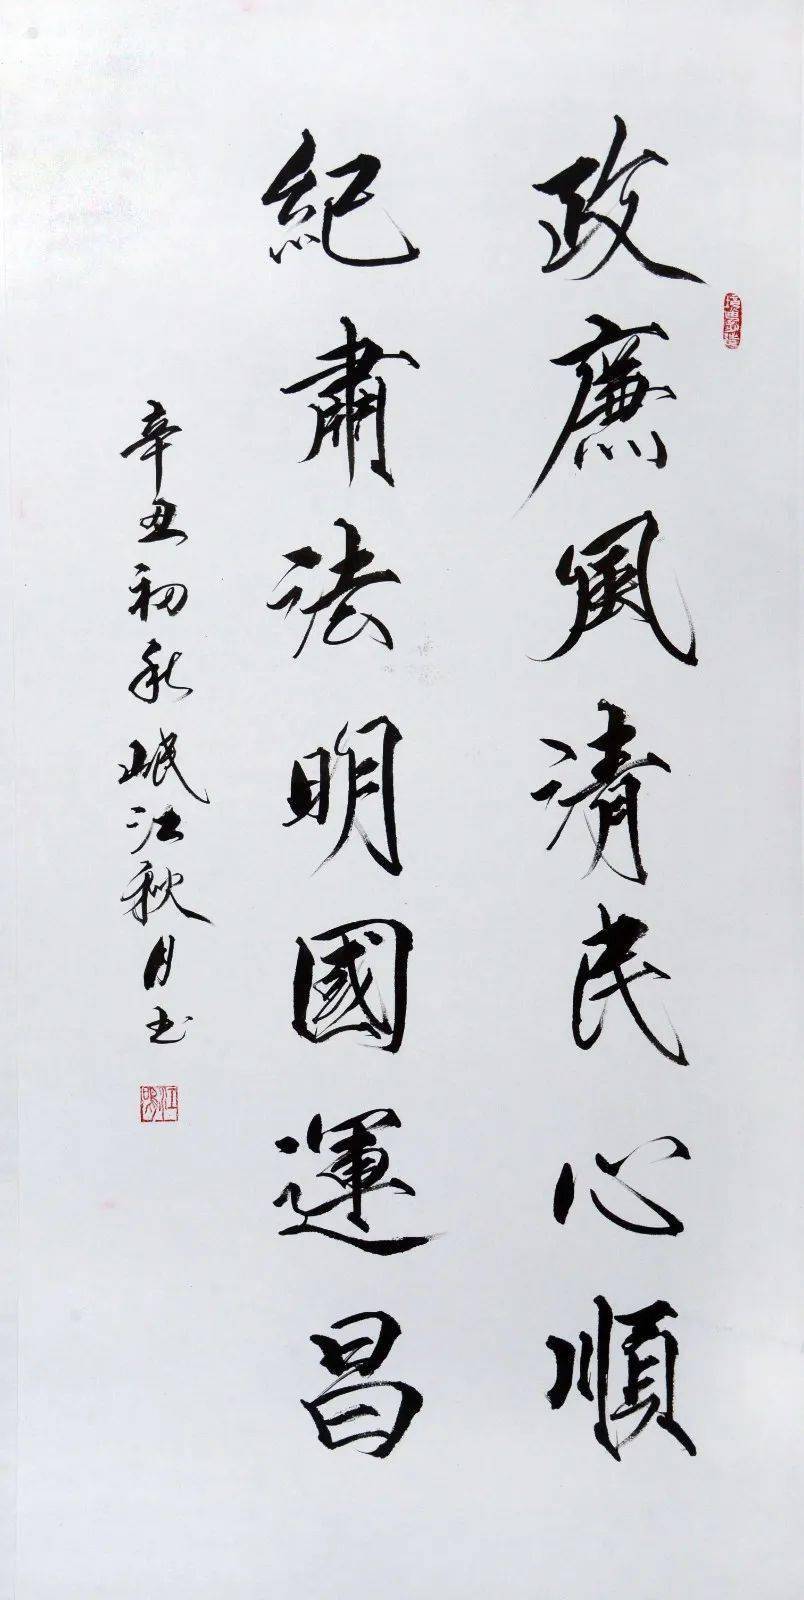 政廉風清民心順
紀肅法明國運昌
辛丑初秋岷江秋月书